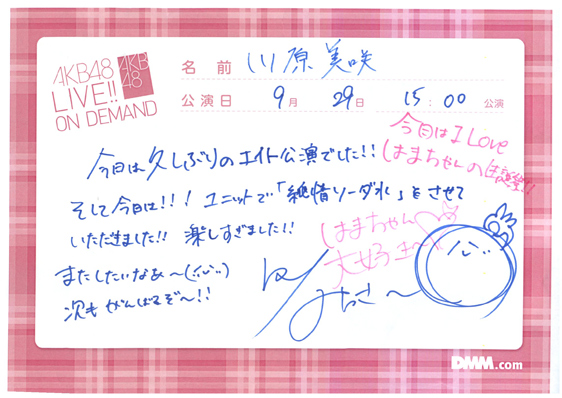 AKB48
LIVE!!
ON DEMAND
AKB
48
名前 川原美咲
公演日 9月 29日 15:00 公演
今日は久しぶりのエイト公演でした!!
今日は I Love
はまちゃんの生誕祭!!
そして今日は!!! ユニットで「純情ソーダ水」をさせて
いただきました!! 楽しすぎました!!
はまちゃん
大好き〜
またしたいなぁ〜
次もがんばるぞ〜!!
みさき〜
DMM.com